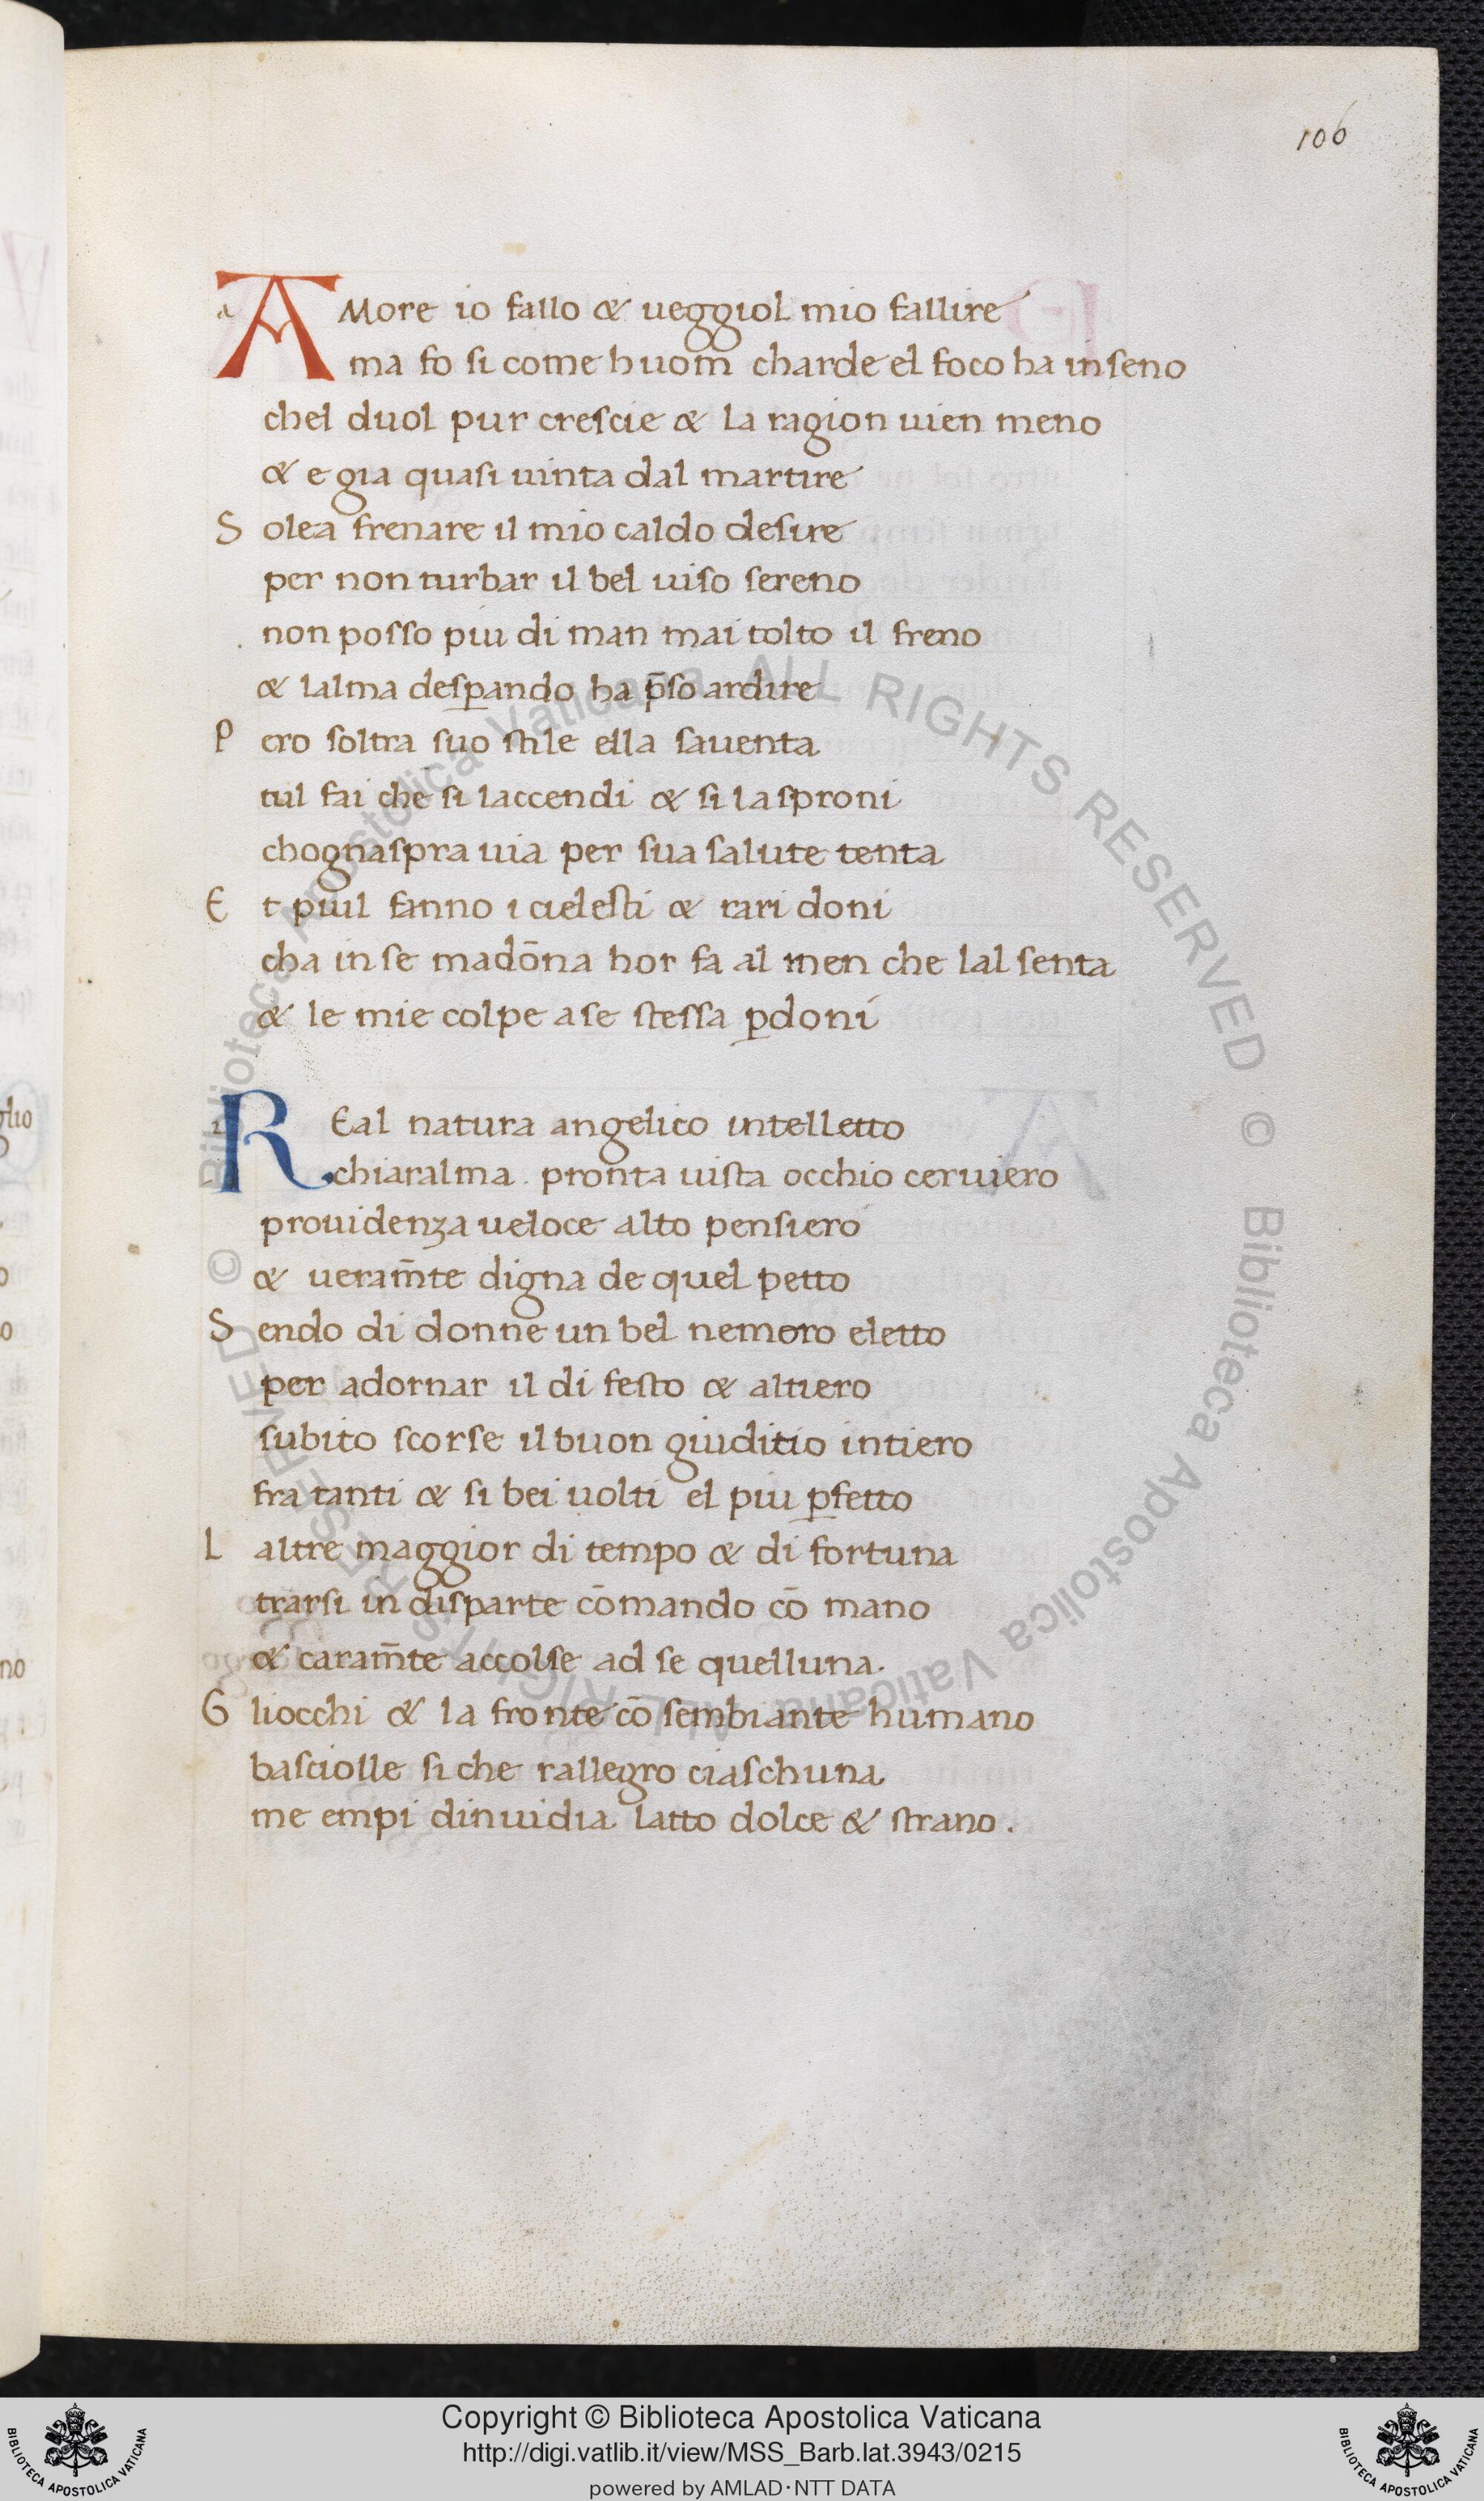 106
AMore io fallo & ueggiol mio fallire
ma fo si come huom̄ charde el foco ha inseno
chel duol pur crescie & la ragion uien meno
& e gia quasi uinta dal martire
Solea frenare il mio caldo desire
per non turbar il bel uiso sereno
non posso piu di man mai tolto il freno
& lalma desꝑando ha p̄so ardire
Pero soltra suo stile ella sauenta
tul fai che si laccendi & si lasproni
chognaspra uia per sua salute tenta
Et piul fanno i cielesti & rari doni
cha in se madōna hor fa al men che lal senta
& le mie colpe a se stessa ꝑdoni
REal natura angelico intelletto
chiaralma. pronta uista occhio ceruiero
prouidenza ueloce alto pensiero
& ueram̄te digna de quel petto
Sendo di donne un bel nemoro eletto
per adornar il di festo & altiero
subito scorse il buon giuditio intiero
fra tanti & si bei uolti el piu ꝑfetto
Laltre maggior di tempo & di fortuna
trarsi in disparte cōmando cō mano
& caram̄te accolse ad se quelluna.
Gliocchi & la fronte cō sembiante humano
basciolle si che rallegro ciaschuna
me empi dinuidia latto dolce & strano.
© Biblioteca Apostolica Vaticana ALL RIGHTS RESERVED © Biblioteca Apostolica Vaticana ALL RIGHTS RESERVED
Copyright © Biblioteca Apostolica Vaticana
http://digi.vatlib.it/view/MSS_Barb.lat.3943/0215
powered by AMLAD·NTT DATA
BIBLIOTECA APOSTOLICA VATICANA
BIBLIOTECA APOSTOLICA VATICANA